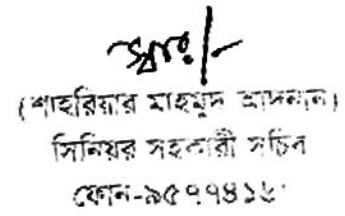 স্বাঃ/-
(শাহরিয়ার মাহমুদ আদনান)
সিনিয়র সহকারী সচিব
ফোন-৯৫৭৭৪১৬